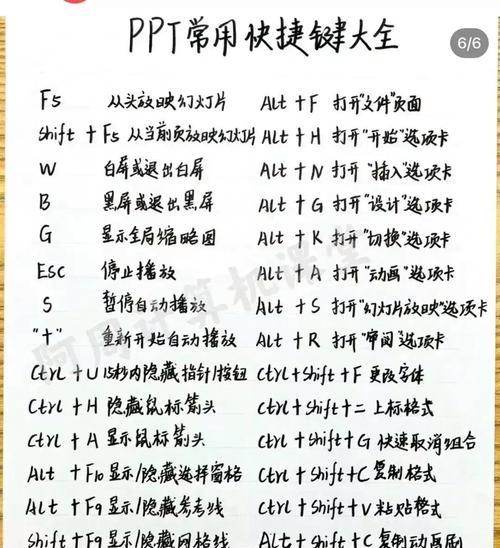 PPT常用快捷键大全
6/6
F5 从头放映幻灯片 Alt + F 打开"文件"页面
Shift + F5 从当前页放映幻灯片 Alt + H 打开"开始"选项卡
W 白屏或退出白屏 Alt + N 打开"插入"选项卡
B 黑屏或退出黑屏 Alt + G 打开"设计"选项卡
G 显示全局缩略图 Alt + K 打开"切换"选项卡
Esc 停止播放 Alt + A 打开"动画"选项卡
S 暂停自动播放 Alt + S 打开"幻灯片放映"选项卡
"+" 重新开始自动播放 Alt + R 打开"审阅"选项卡
Ctrl + U 15秒内隐藏指针/按钮 Ctrl+Shift+F 更改字体
Ctrl + H 隐藏鼠标箭头 Ctrl+Shift+= 上标格式
Ctrl + A 显示鼠标箭头 Ctrl+Shift+G 快速取消组合
Alt + F10 显示/隐藏选择窗格 Ctrl+Shift+C 复制格式
Alt + F9 显示/隐藏参考线 Ctrl+Shift+V 粘贴格式
Shift+F9 显示/隐藏网格线 Alt+Shift+C 复制动画刷
阿周计算机课堂